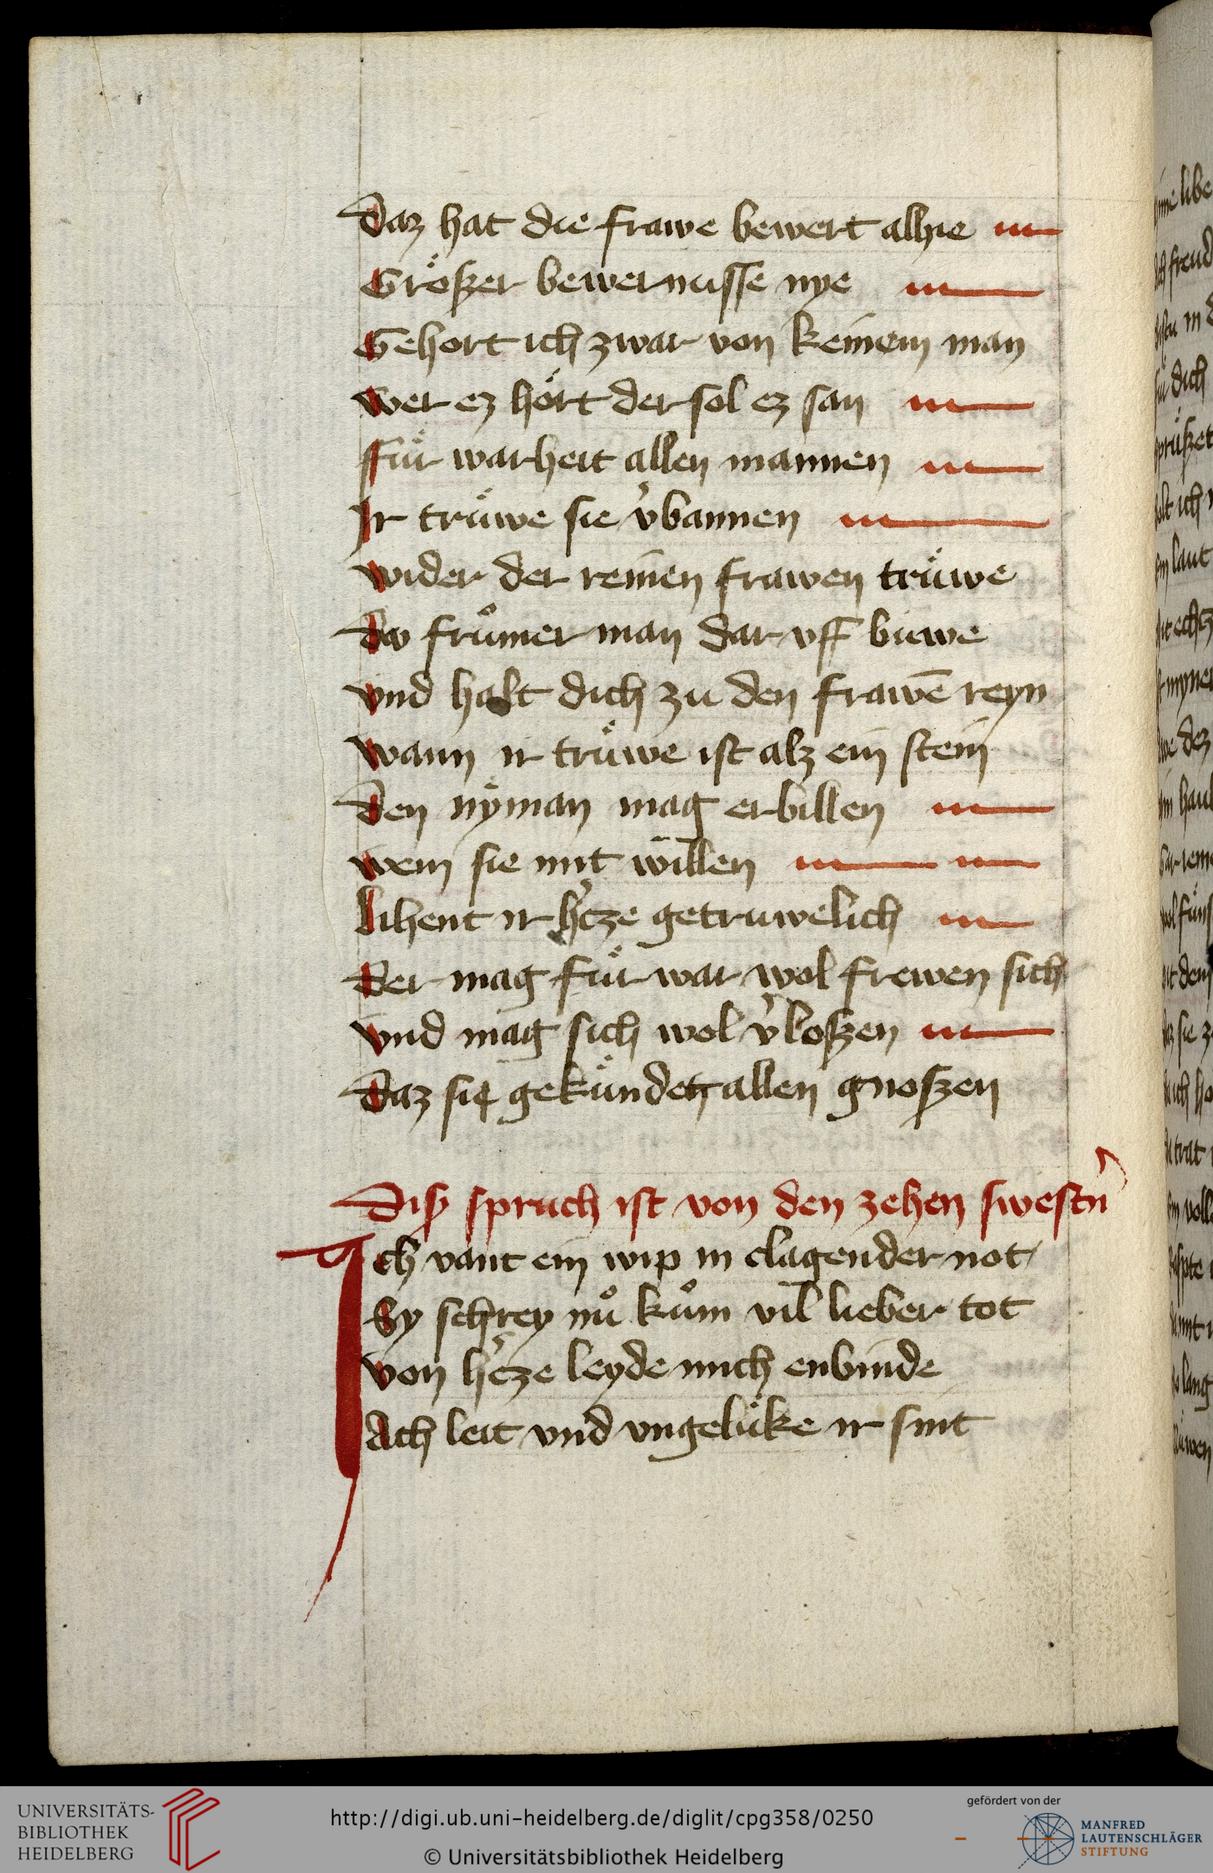 Daz hat die frawe bewert alhie
Größzer bewernusse nye
Gehort ich zwar von keinem man
wer ez hört der sol ez san
ffür warheit allen mannen
Ir trüwe sie v̓bannen
wider der reinen frawen trüwe
Do fruͦmer man dar vff buwe
vnd halt dich zu den frawē reyn
wann ir trüwe ist alz ein stein
den nÿman mag erbillen
wem sie mit willen
lihent ir h̓cze getruwelich
Der mag für war wol frewen sich
vnd mag sich wol v̓loßen
Daz sie gekünden allen gnoßen
Diß spruch ist von den zehen swestn̓
Ich vant ein wip in clagender not
Sy schrey nuͦ kuͦm vil lieber tot
von h̓cze leyde mich enbinde
Ach leit vnd vngelüke ir sint
UNIVERSITÄTS-
BIBLIOTHEK
HEIDELBERG
http://digi.ub.uni-heidelberg.de/diglit/cpg358/0250
© Universitätsbibliothek Heidelberg
gefördert von der
MANFRED
LAUTENSCHLÄGER
STIFTUNG